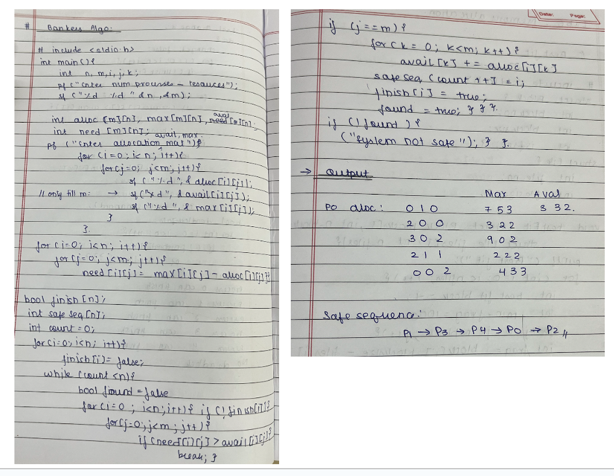 # Bankers Algo:
# include <stdio.h>
int main() {
int n, m, i, j, k;
pf ("Enter num processes - resources");
sf ("%d %d" &n, &m);
int alloc [m][n], max [m][n], avail [m][n];
int need [m][n]; avail, max.
pf ("Enter allocation mat") {
for (i=0; i<n; i++) {
for (j=0; j<m; j++) {
sf ("%d", & alloc [i][j]);
// only till m: → sf ("%d", & avail [i][j]);
sf ("%d", & max [i][j]);
}
}
for (i=0; i<n; i++) {
for (j=0; j<m; j++) {
need [i][j] = max [i][j] - alloc [i][j]
bool finish [n];
int safe seq [n];
int count = 0;
for (i=0; i<n; i++) {
finish [i] = false;
while (count <n) {
bool found = false
for (i=0; i<n; i++) { if (! finish [i]) {
for (j=0; j<m; j++) {
if (need [i][j] > avail [i][j]) {
break; }
Date: Page:
if (j==m) {
for (k=0; k<m; k++) {
avail [k] += alloc [i][k]
safe seq [count ++] = i;
finish [i] = true;
found = true; } } }
if (! found) {
("System not safe"); } }.
→ Output
Max Aval
P0 aloc: 0 1 0 7 5 3 3 3 2.
2 0 0 3 2 2
3 0 2 9 0 2
2 1 1 2 2 2
0 0 2 4 3 3
Safe sequence:
P1 → P3 → P4 → P0 → P2 //